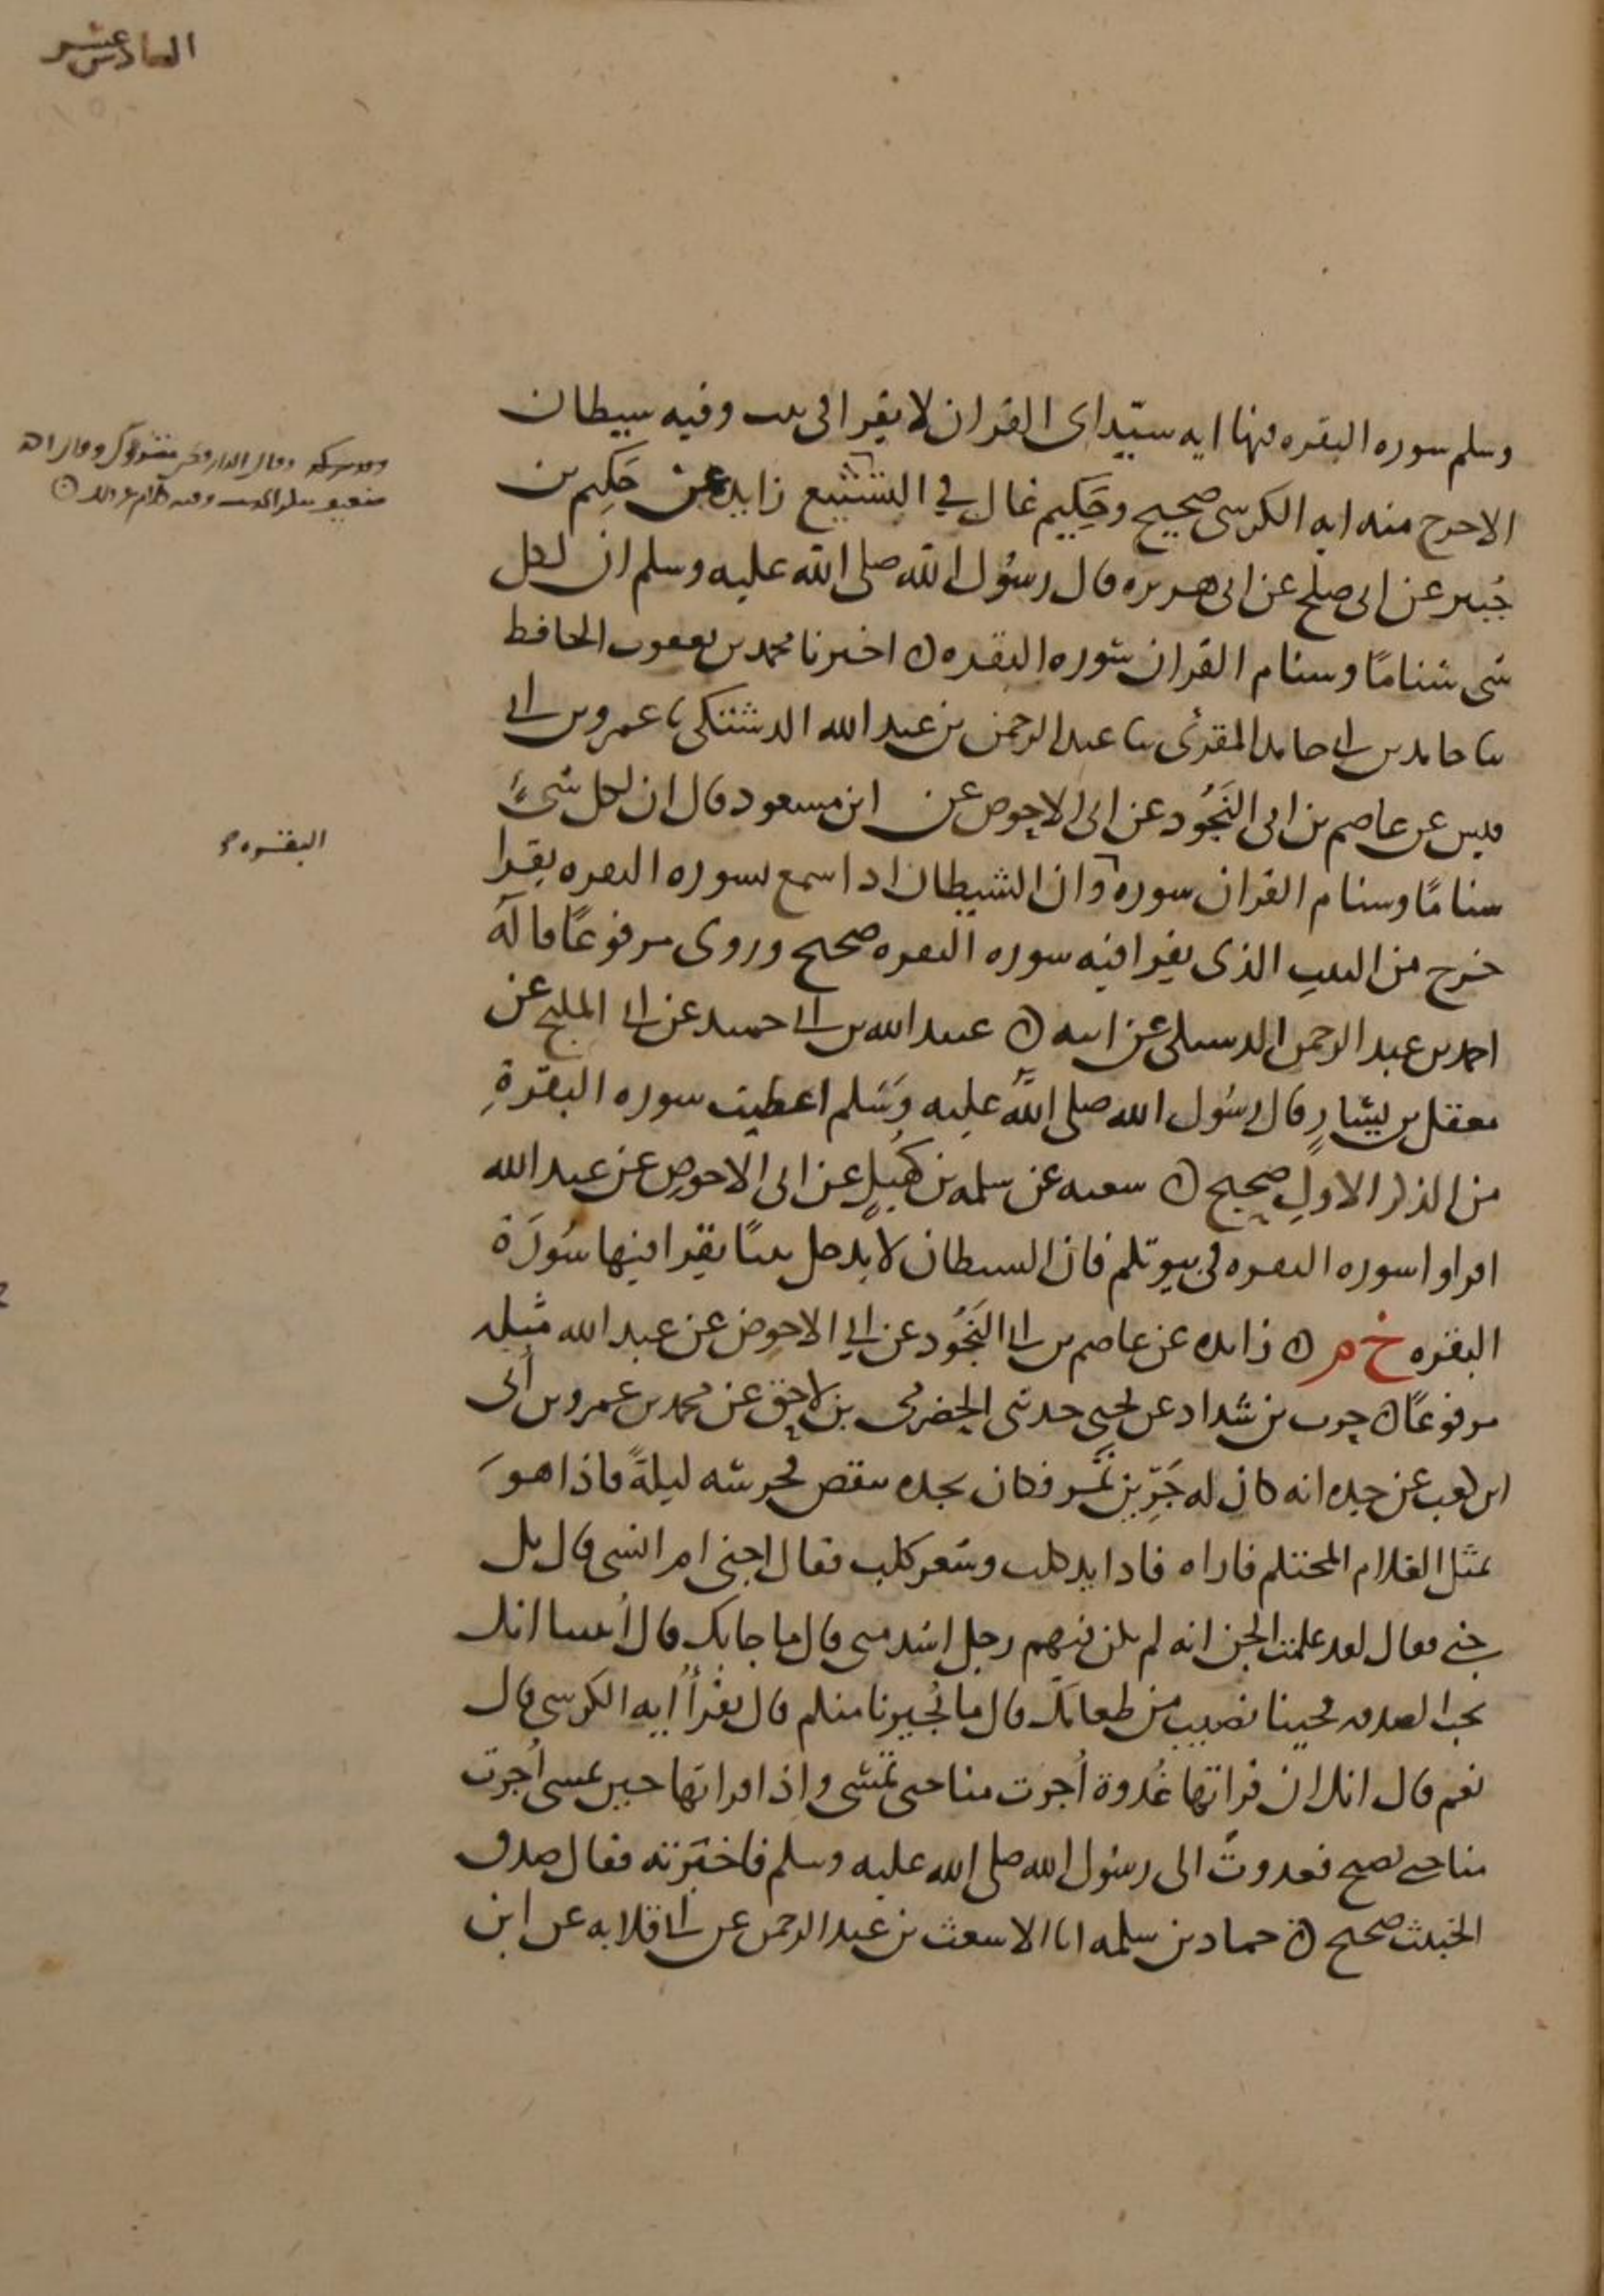 السادس عشر
وسلم سوره البقره فيها ايه سيّد اى القران لا يقرا فى بيت وفيه شيطان
الا خرج منه ايه الكرسى صحيح وحَكِيم غال في التشيع زايده عن حَكِيم بن
جُبير عن ابى صلح عن ابى هريره قال رسُول الله صلى الله عليه وسلم ان لكل
شى سنامًا وسنام القران سوره البقره ن اخبرنا محمد بن يعقوب الحافظ
ثنا حامد بن ابى حامد المقرئ ثنا عبد الرحمن بن عبد الله الدشتكى ثنا عمرو بن ابى
قيس عن عاصم بن ابى النَجُود عن ابى الاحوص عن ابن مسعود قال ان لكل شىءٍ
سنامًا وسنام القران سوره وان الشيطان اذا سمع سوره البقره يقرا
البقره
خرج من البيتِ الذى يقرا فيه سوره البقره صحيح وروى مرفوعًا قاله
احمد بن عبد الرحمن الدشتكى عن ابيه ن عبيد الله بن ابى حميد عن ابى المليح عن
معقل بن يسارٍ قال رسُول الله صلى الله عليه وَسَلم اعطيت سوره البقرةِ
من الذكر الاولِ صحيح ن شعبه عن سلمه بن كُهَيلٍ عن ابى الاحوص عن عبد الله
اقراوا سوره البقره فى بيوتكم فان الشيطان لا يدخل بيتًا يقرا فيها سُورَة
البقره خ م ن زايده عن عاصم بن ابى النَجُود عن ابي الاحوص عن عبد الله مثله
مرفوعًا ن حرب بن شداد عن يحيى حدثنى الحضرمى بن لاحق عن محمد بن عمرو بن اُبى
ابن كعب عن جده انه كان له جَرِين تَمْر فكان يجده ينقص فحرسه ليلةً فاذا هوَ
بمثل الغلام المحتلم فاراه فاذا يد كلب وشعر كلب فقال اجنى ام انسى قال بل
جني فقال لقد علمت الجن انه لم يكن فيهم رجل اشد منى قال ما جا بك قال اُنبينا انك
تحب الصدقه فجينا نصيب من طعامك قال ما يُجيرنا منكم قال تقرأُ ايه الكرسى قال
نعم قال انك ان قراتها غُدوة اُجرت منا حتى تمسى واذا قراتها حين تمسى اُجرت
منا حتى تصبح فغدوتُ الى رسُول الله صلى الله عليه وسلم فاخبرته فقال صدق
الخبيث صحيح ن حماد بن سلمه انا الاشعث بن عبد الرحمن عن ابى قلابه عن ابن